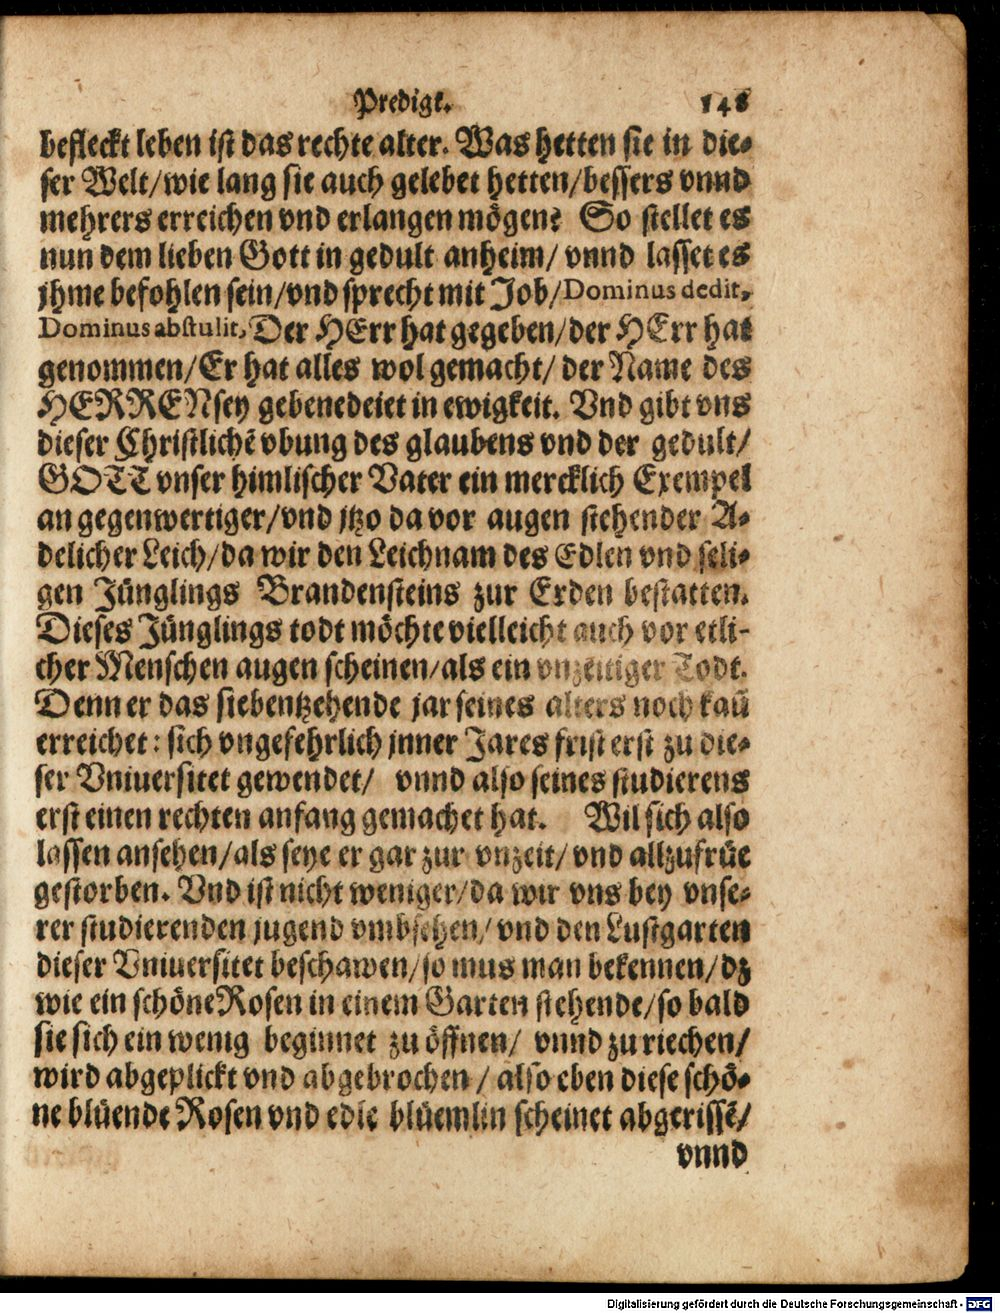 Predigt. 148
befleckt leben ist das rechte alter. Was hetten sie in die-
ser Welt/wie lang sie auch gelebet hetten/bessers vnnd
mehrers erreichen vnd erlangen mögen? So stellet es
nun dem lieben Gott in gedult anheim/ vnnd lasset es
jhme befohlen sein/vnd sprecht mit Job/Dominus dedit,
Dominus abstulit, Der HErr hat gegeben/der HErr hat
genommen/Er hat alles wol gemacht/ der Name des
HERREN sey gebenedeiet in ewigkeit. Vnd gibt vns
dieser Christlichē vbung des glaubens vnd der gedult/
GOTT vnser himlischer Vater ein mercklich Exempel
an gegenwertiger/vnd jtzo da vor augen stehender A-
delicher Leich/da wir den Leichnam des Edlen vnd seli-
gen Jünglings Brandensteins zur Erden bestatten.
Dieses Jünglings todt möchte vielleicht auch vor etli-
cher Menschen augen scheinen/als ein vnzeitiger Todt.
Denn er das siebentzehende jar seines alters noch kaū
erreichet: sich vngefehrlich jnner Jares frist erst zu die-
ser Vniuersitet gewendet/ vnnd also seines studierens
erst einen rechten anfang gemachet hat. Wil sich also
lassen ansehen/als seye er gar zur vnzeit/ vnd allzufrüe
gestorben. Vnd ist nicht weniger/da wir vns bey vnse-
rer studierenden jugend vmbsehen/ vnd den Lustgarten
dieser Vniuersitet beschawen/so mus man bekennen/dz
wie ein schöne Rosen in einem Garten stehende/so bald
sie sich ein wenig beginnet zu öffnen/ vnnd zu riechen/
wird abgeplickt vnd abgebrochen / also eben diese schö-
ne blüende Rosen vnd edle blüemlin scheinet abgerissē/
vnnd
Digitalisierung gefördert durch die Deutsche Forschungsgemeinschaft - DFG